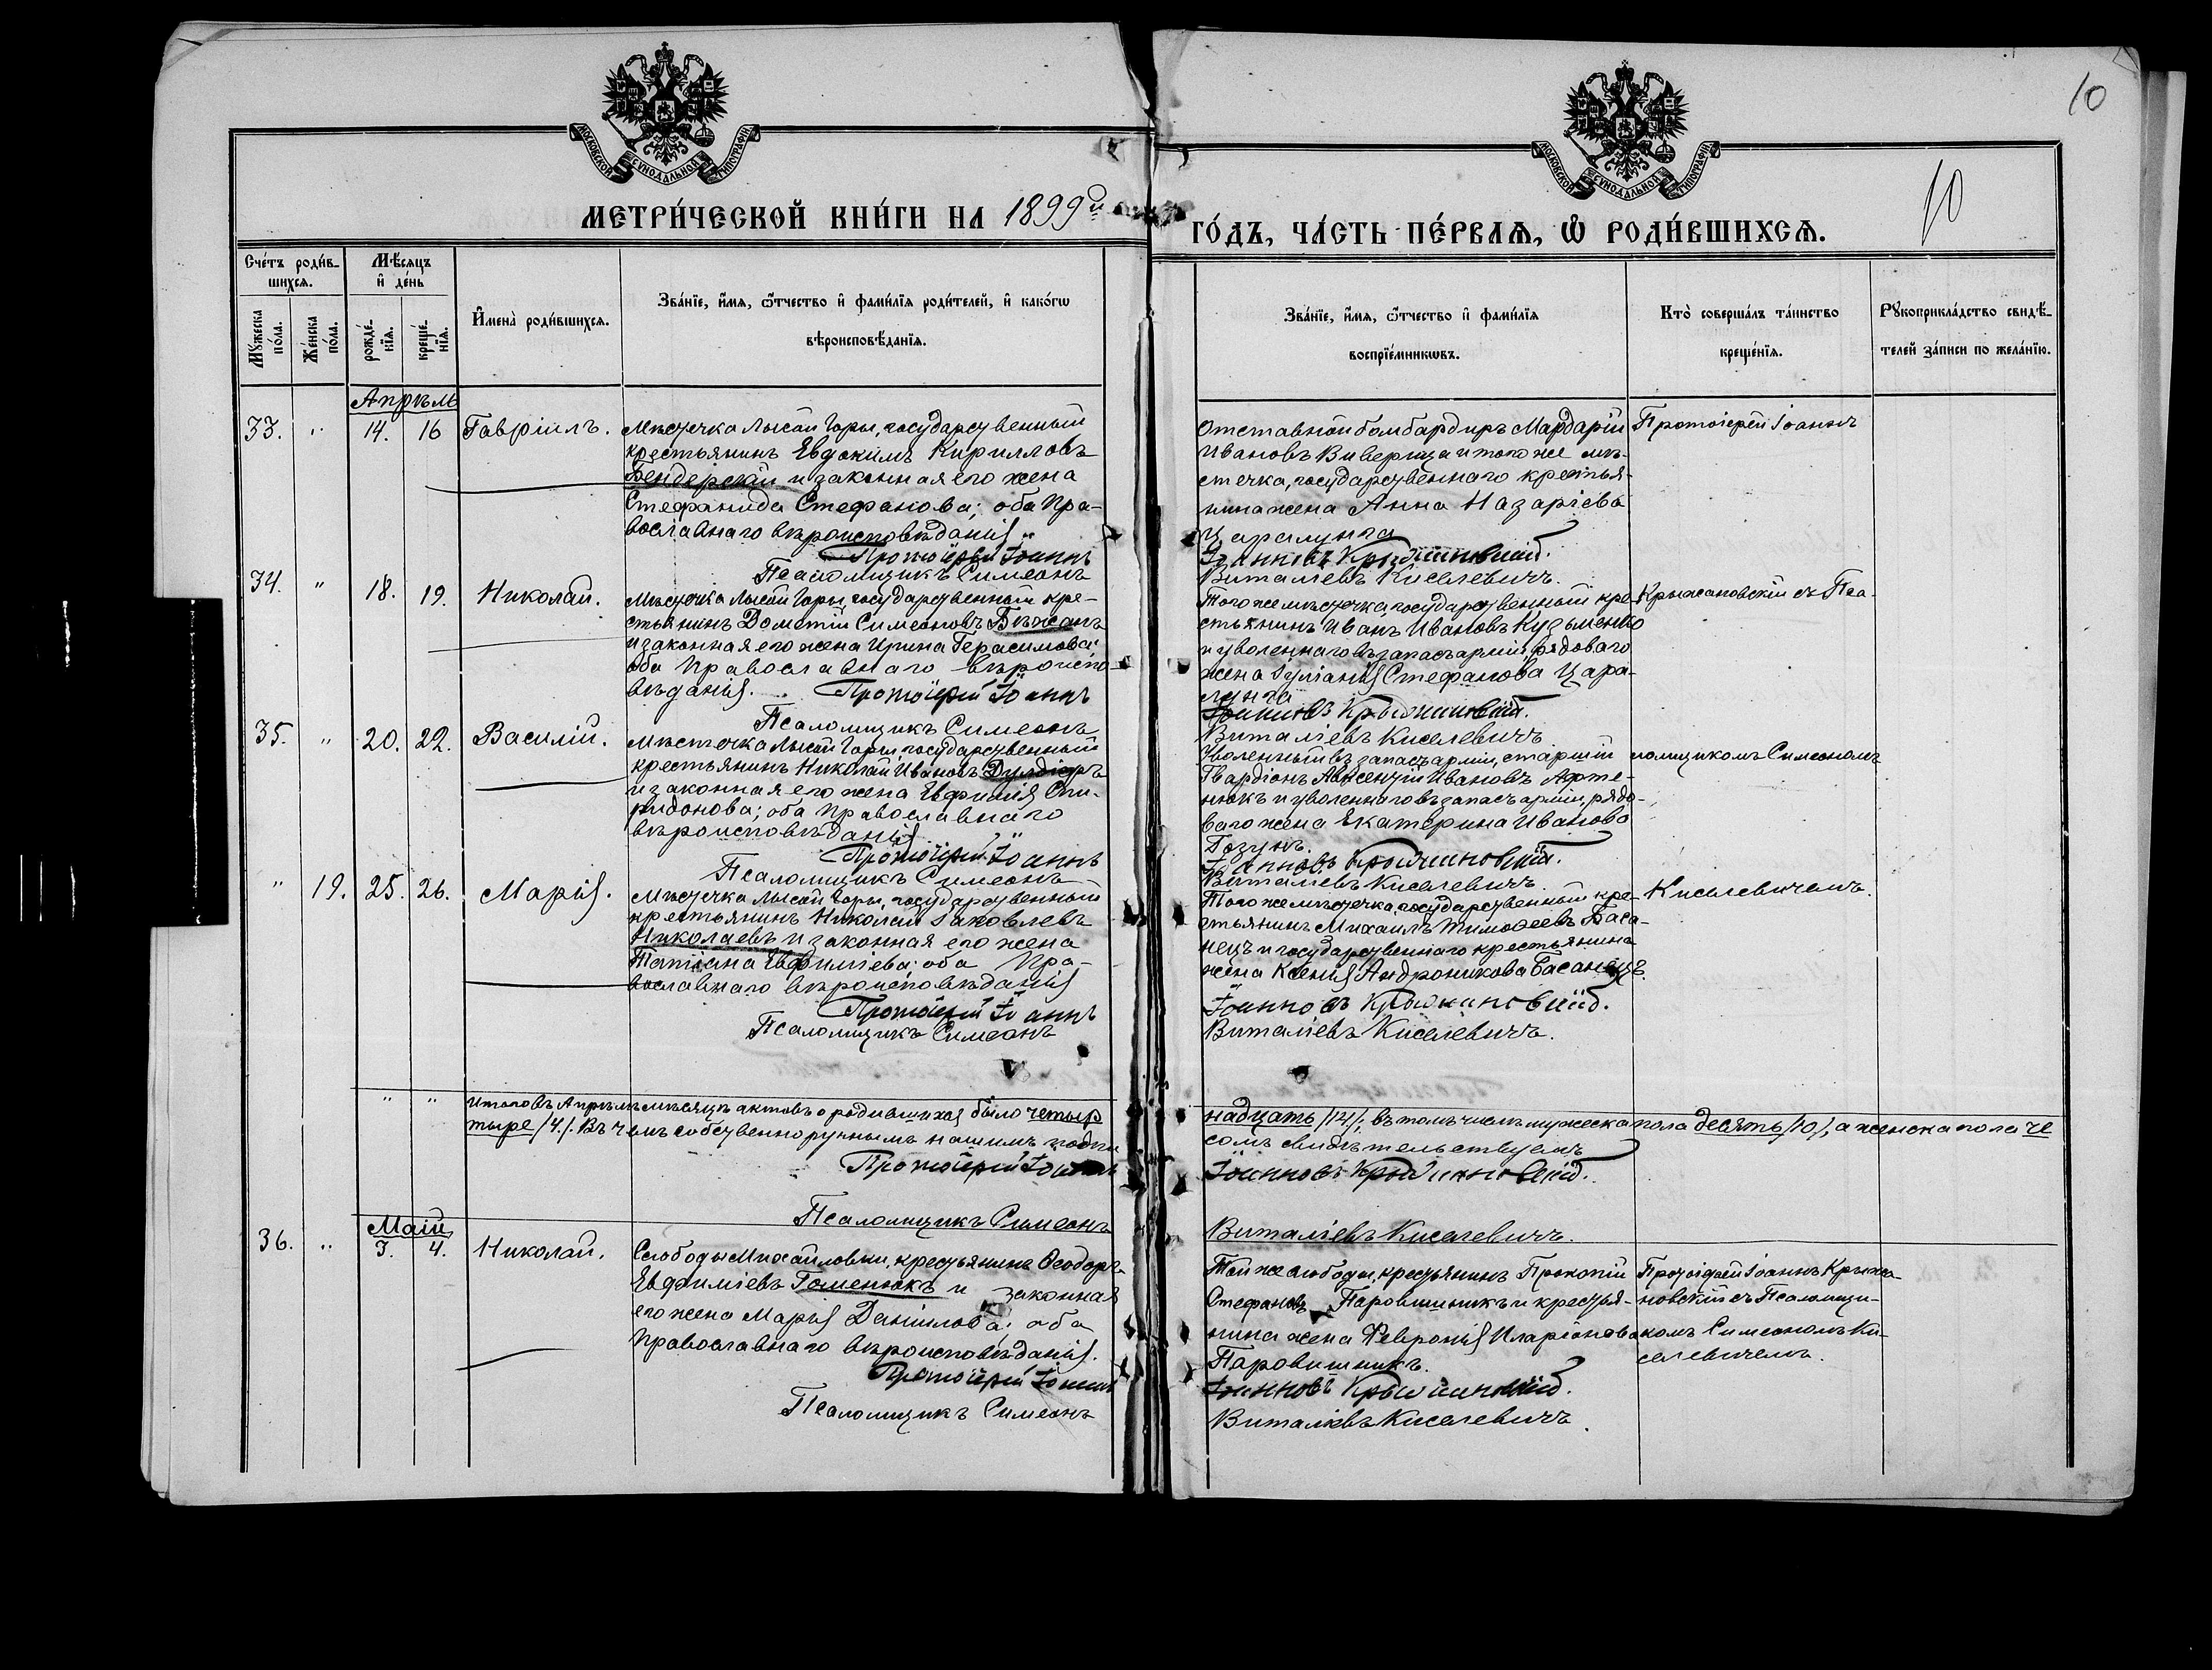 10
МОСКОВСКОЙ СѴНОДАЛЬНОЙ ТИПОГРАФІИ
МОСКОВСКОЙ СѴНОДАЛЬНОЙ ТИПОГРАФІИ
10
МЕТРИ́ЧЕСКОЙ КНИ́ГИ НА 1899й
ГО́ДЪ, ЧА́СТЬ ПЕ́РВАѦ, Ѡ РОДИ́ВШИХСѦ.
Сче́тъ роди́в-
шихсѧ.
Мꙋ́жеска по́ла.
Же́нска по́ла.
Мѣ́сѧцъ и де́нь
рожде́-нїѧ.
креще́-нїѧ.
Имена̀ роди́вшихсѧ.
Зва́нїе, и́мѧ, ѻ҆́тчество и фами́лїѧ роди́телей, и како́гѡ
вѣроисповѣ́данїѧ.
Зва́нїе, и́мѧ, ѻ҆́тчество и фами́лїѧ
воспрїе́мникѡвъ.
Кто̀ соверша́лъ та́инство
креще́нїѧ.
Рꙋкоприкла́дство свидѣ́-
телей за́писи по жела́нїю.
Апрѣль
33. " 14. 16 Гавріилъ.
Мѣстечка Лысой Горы, государственный
крестьянинъ Евдокимъ Кирилловъ
Бендерскій и законная его жена
Стефанида Стефанова; оба Пра-
вославнаго вѣроисповѣданія.
Протоіерей Іоаннъ
Псаломщикъ Симеонъ
Отставной бомбардиръ Мардарій
Ивановъ Виверица и того же мѣ-
стечка, государственнаго крестья-
нина жена Анна Назаріева
Царалунга
Іоанновъ Крыжановскій.
Виталіевъ Киселевичъ.
Протоіерей Іоаннъ
34. " 18. 19. Николай.
Мѣстечка Лысой Горы, государственный кре-
стьянинъ Дометій Симеоновъ Бѣжанъ
и законная его жена Ирина Герасимова;
оба Православнаго вѣроиспо-
вѣданія.
Протоіерей Іоаннъ
Псаломщикъ Симеонъ
Того же мѣстечка, государственный кре-
стьянинъ Иванъ Ивановъ Кузьменко
и уволеннаго въ запасъ арміи, рядоваго
жена Іуліанія Стефанова Цара-
лунга
Іоанновъ Крыжановскій.
Виталіевъ Киселевичъ
Крыжановскій съ Пса-
35. " 20. 22. Василій.
Мѣстечка Лысой Горы, государственный
крестьянинъ Николай Ивановъ
и законная его жена Евфимія Спи-
ридонова; оба Православнаго
вѣроисповѣданія
Протоіерей Іоаннъ
Псаломщикъ Симеонъ
Уволенный въ запасъ арміи, старшій
Авксентій Ивановъ Афте-
нюкъ и уволеннаго въ запасъ арміи, рядо-
ваго жена Екатерина Иванова
Гозунъ.
Іоанновъ Крыжановскій.
Виталіевъ Киселевичъ.
ломщикомъ Симеономъ
" 19. 25. 26. Марія.
Мѣстечка Лысой Горы, государственный
крестьянинъ Николай Іаковлевъ
Николаевъ и законная его жена
Татіана Евфиміева; оба Пра-
вославнаго вѣроисповѣданія
Протоіерей Іоаннъ
Псаломщикъ Симеонъ
Того же мѣстечка, государственный кре-
стьянинъ Михаилъ Тимоѳеевъ Баса-
нецъ и государственнаго крестьянина
жена Ксенія Андроникова Басанецъ.
Іоанновъ Крыжановскій.
Виталіевъ Киселевичъ.
Киселевичемъ.
" " Итого въ Апрѣлѣ мѣсяцѣ актовъ о родившихся было четыр
надцать /14/, въ томъ числѣ мужеска пола десять /10/, а женска пола че
тыре /4/. Въ чемъ собственноручнымъ нашимъ подпи
сомъ свидѣтельствуемъ
Протоіерей Іоаннъ
Іоанновъ Крыжановскій.
Псаломщикъ Симеонъ
Виталіевъ Киселевичъ.
Маій
36. " 3. 4. Николай.
Слободы Михайловки, крестьянинъ Ѳеодоръ
Евфиміевъ Гоменюкъ и законная
его жена Марія Даніилова; оба
Православнаго вѣроисповѣданія.
Протоіерей Іоаннъ
Псаломщикъ Симеонъ
Той же слободы, крестьянинъ Прокопій
Стефановъ Паровишникъ и крестья-
нина жена Февронія Иларіонова
Паровишникъ.
Іоанновъ Крыжановскій.
Виталіевъ Киселевичъ.
Протоіерей Іоаннъ Крыжа-
новскій съ Псаломщи-
комъ Симеономъ Ки-
селевичемъ.